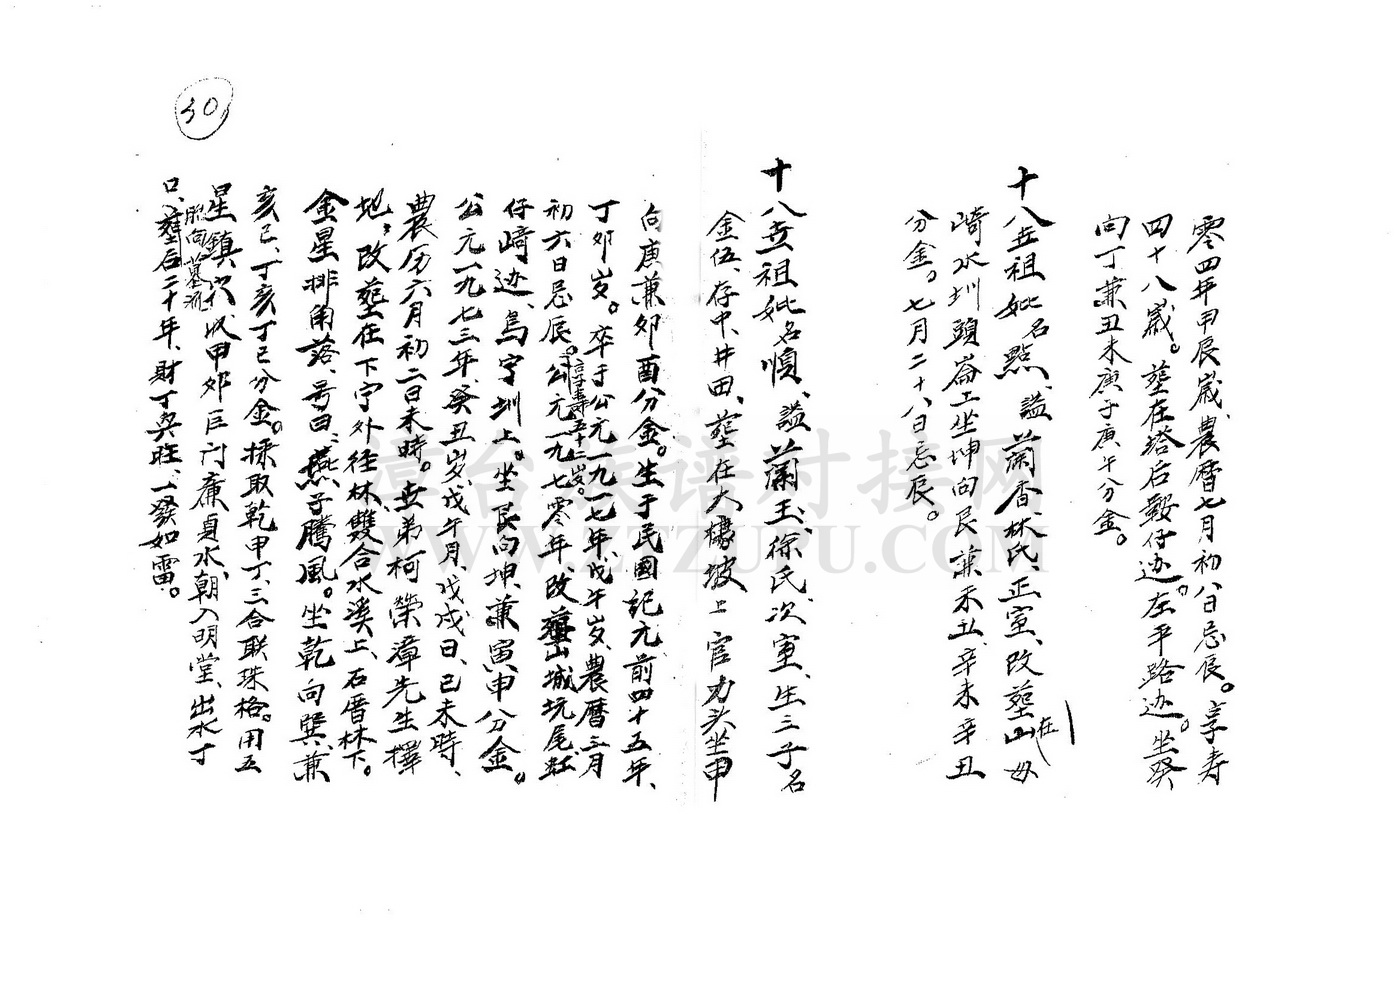 零四年甲辰嵗、農曆七月初八日忌辰。享寿
四十八嵗。塟在塔后鞍仔迹。左平路迹。坐癸
向丁兼丑未庚子庚午分金。
十八世祖妣名點、謚蘭香、林氏、正室、改塟在山母
崎水圳頭崙上坐坤向艮兼未丑、辛未辛丑
分金。七月二十八日忌辰。
十八世祖妣名順、謚蘭玉、徐氏次室、生三子名
金伍、存中、井田、塟在大檺坡上官力头坐甲
向庚兼卯酉分金。生于民國記元前四十五年、
丁卯岁。卒于公元一九一七年、戊午岁、農曆三月
初六日忌辰。享寿五十二岁。公元一九七零年、改塟山城坑尾
仔崎迹、烏宁圳上。坐艮向坤、兼寅申分金。
公元一九七三年、癸丑岁、戊午月、戊戌日、己未時、
農历六月初二日未時。世弟柯榮漳先生擇
地、改塟在下宁外徑林、雙合水溪上、石厝林下。
金星排角落、号曰、燕子騰風。坐乾向巽、兼
亥巳、丁亥丁巳分金。揉取乾甲丁、三合联珠格。用五
星鎮穴、収甲卯巨门廉貞水、朝入明堂、出水丁
口、塟后二十年、財丁興旺、一發如雷。
30
樟台族谱对接网
WWW.ZTZUPU.COM